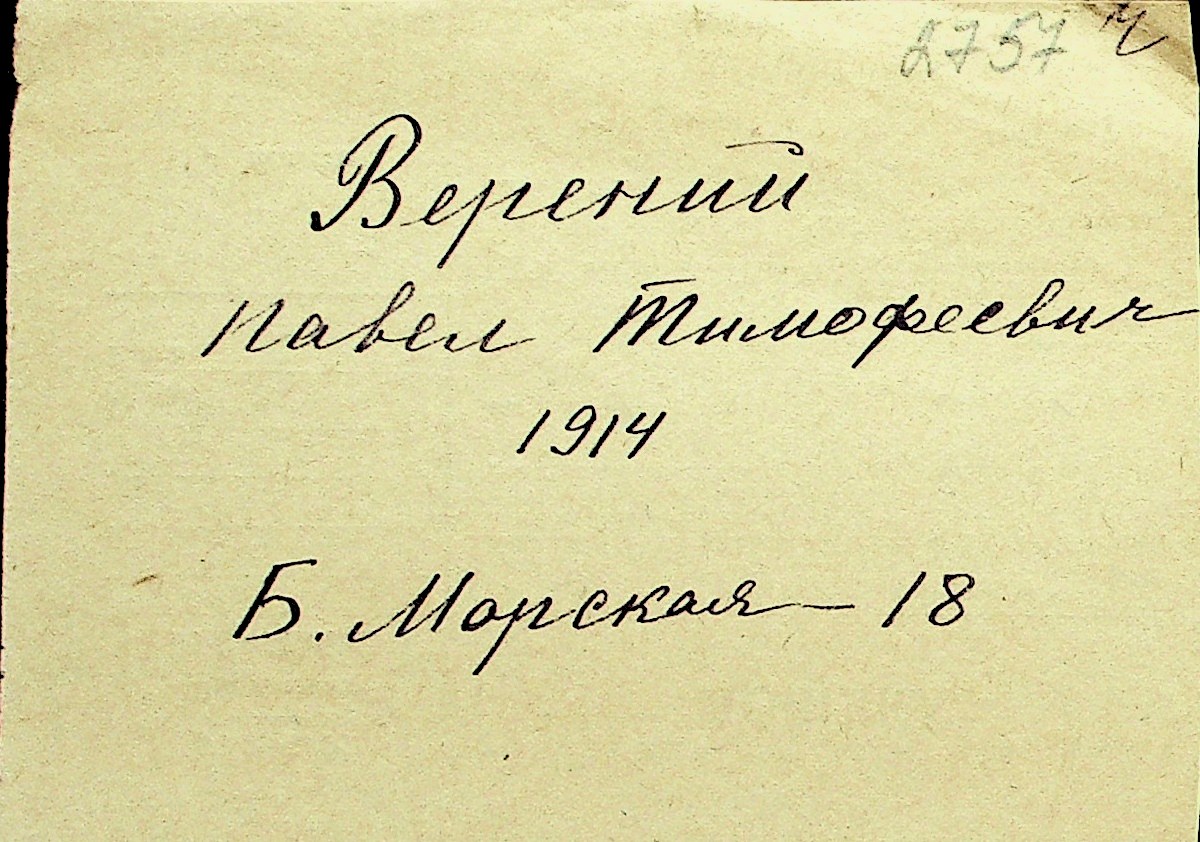 2757
Верений
Павел Тимофеевич
1914
Б. Морская - 18